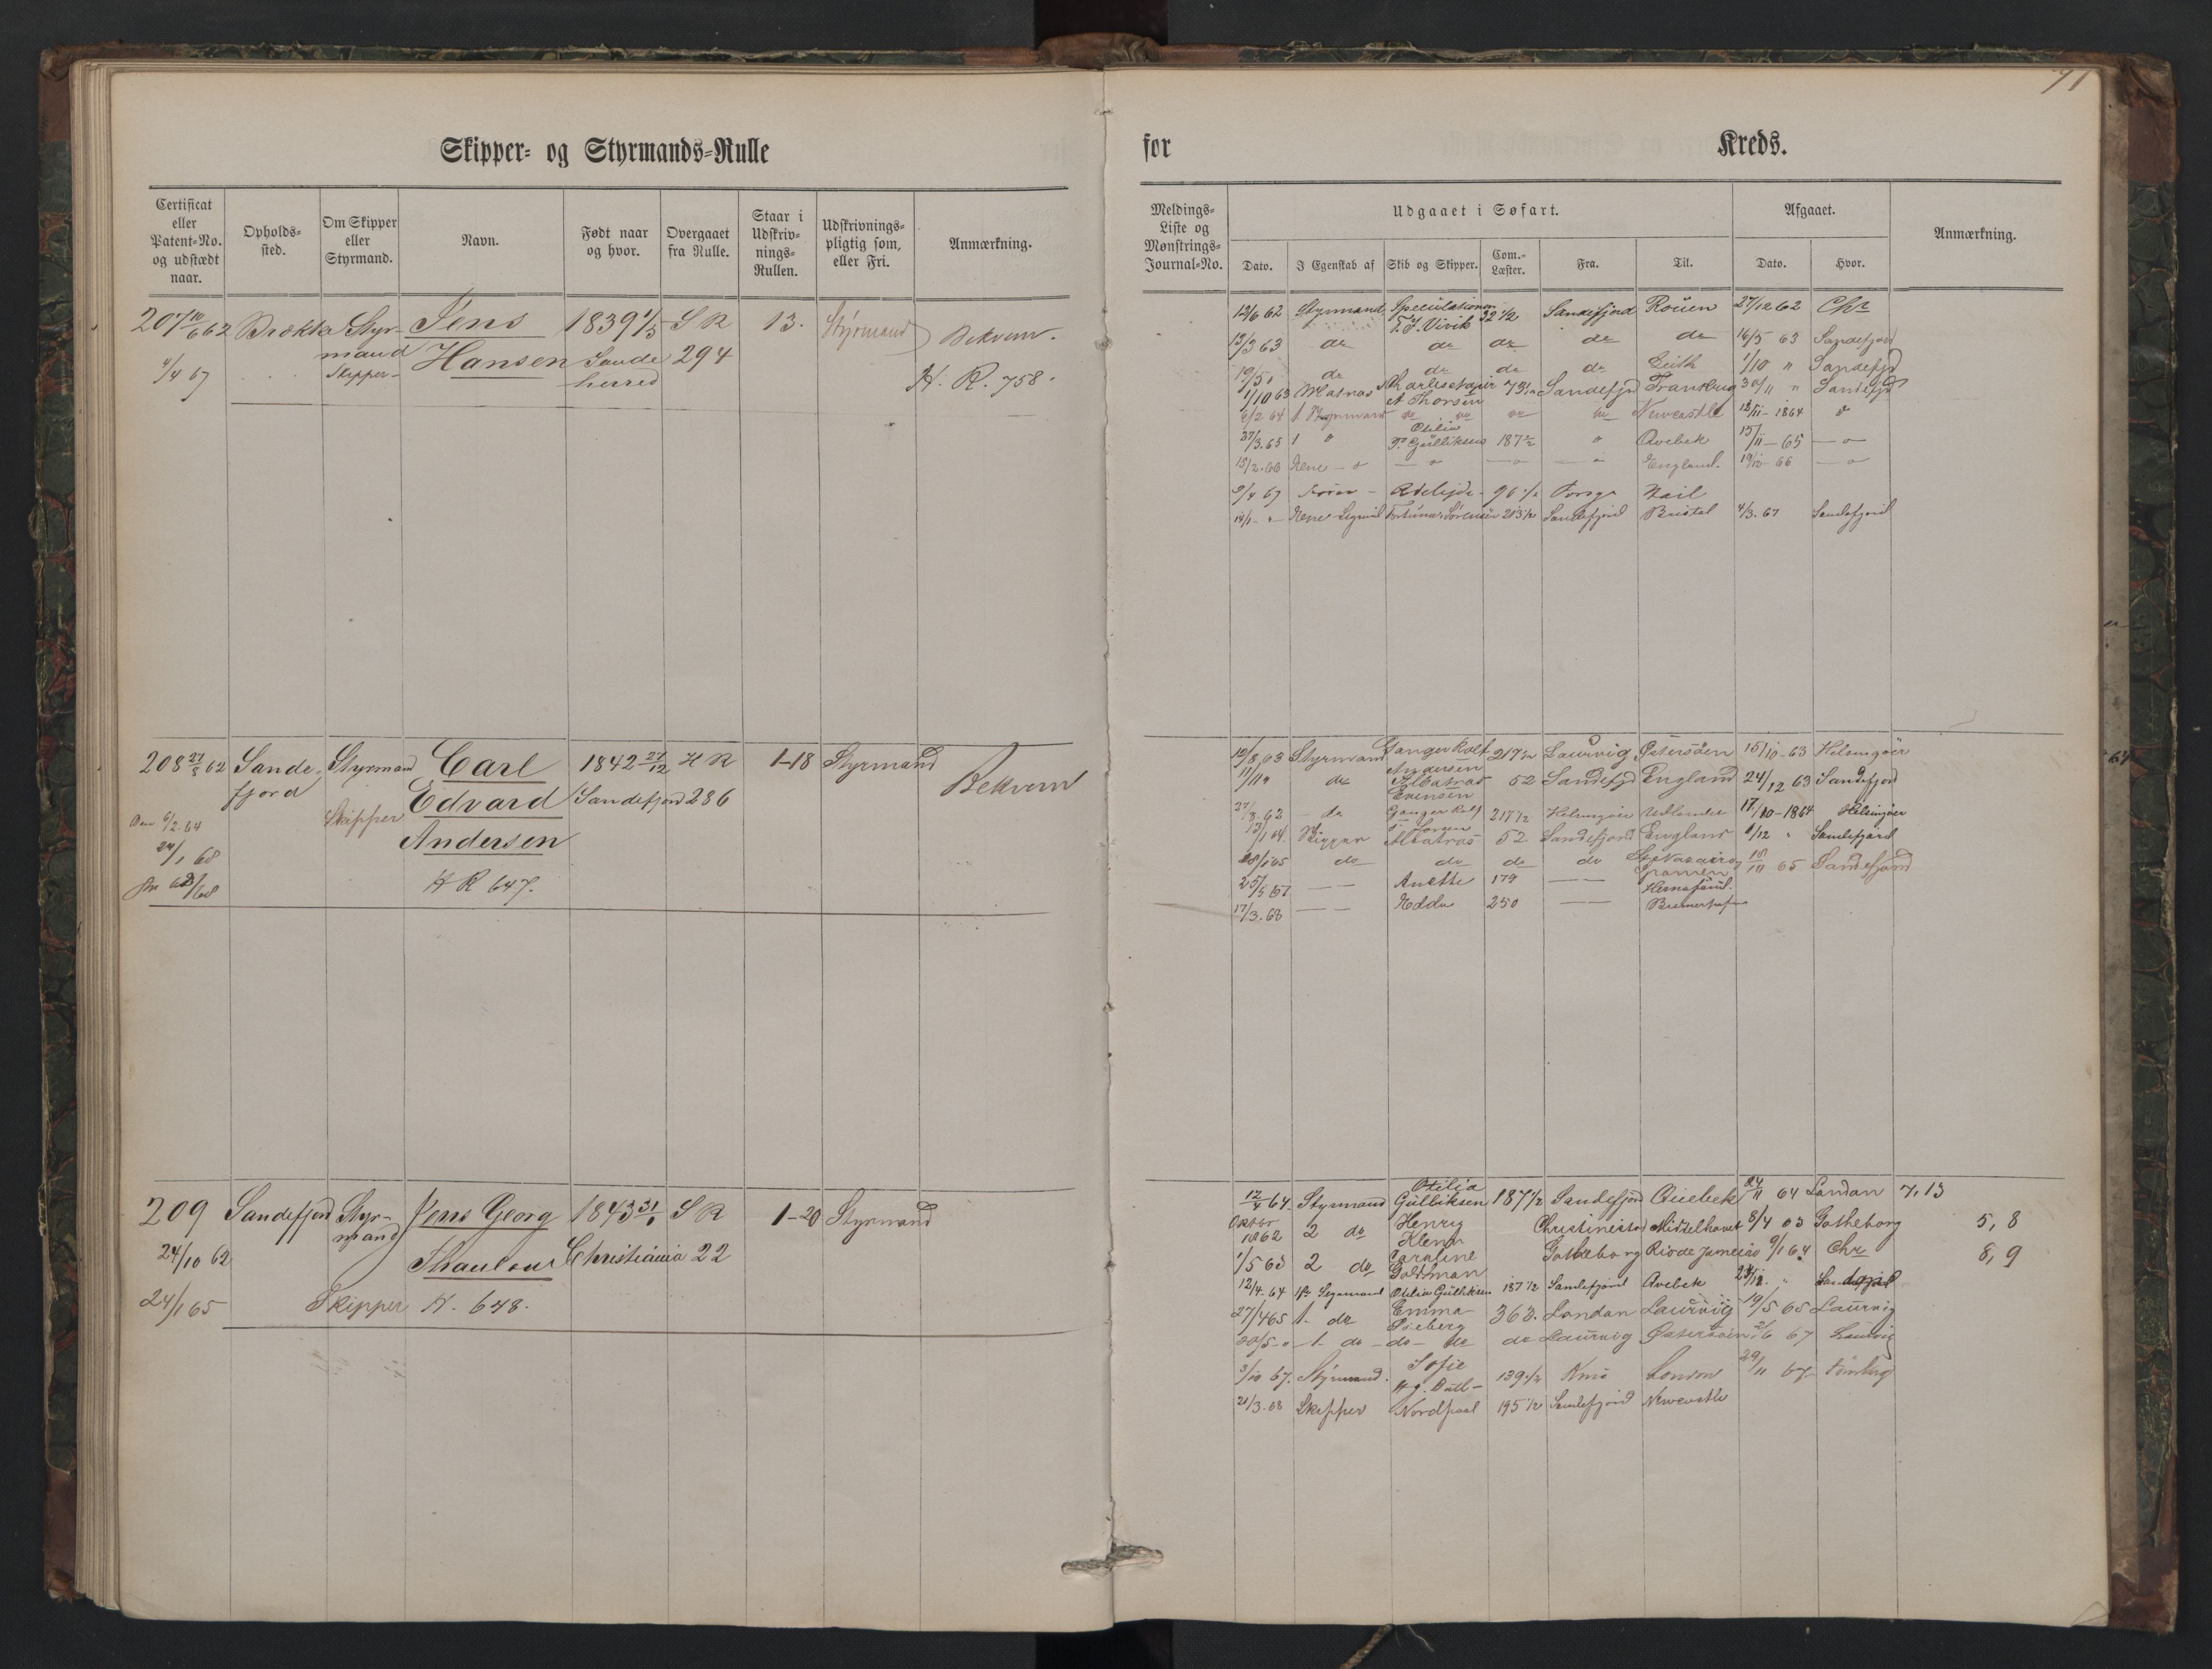 71
Skipper- og Styrmands-Rulle
for Kreds.
Certificat eller Patent-No. og udstædt naar.
Opholds-sted.
Om Skipper eller Styrmand.
Navn.
Født naar og hvor.
Overgaaet fra Rulle.
Staar i Udskriv-nings-Rullen.
Udskrivnings-pligtig som, eller Fri.
Anmærkning.
Meldings-Liste og Mønstrings-Journal-No.
Udgaaet i Søfart.
Dato.
I Egenskab af
Skib og Skipper.
Com.-Læster.
Fra.
Til.
Afgaaet.
Dato.
Hvor.
Anmærkning.
207 10/6 62 Brekke Styr- Jens 1839 1/5 S R 13. Styrmand Bekvem.
4/4 67 mand Hansen Sande 294
Skipper- herred H. R. 758.
12/6 62 Styrmand Speculationen 32 1/2 Sandefjord Rouen 27/12 62 Chr
13/3 63 do do do do do 16/5 63 Sandefjord
19/5 do do do do Leith 1/10 " Sandefjd
1/10 63 Matros Sandefjd 30/11 " Sandefjd
6/2 64 1 Styrmand do do do do Newcastle 12/11 - 1864
Otilia
27/3.65 1 " P. Gulliksen 187 1/2 " Qvebek 15/11 - 65 — " —
15/2.66 England. 19/10 - 66 — " —
9/4 67
14/1 - " Sørensen 213 1/2 Sandefjord Bristol 4/3.67 Sandefjord
208 27/8 62 Sande- Styrmand Carl 1842 27/12 H R 1-18 Styrmand
fjord Skipper Edvard Sandefjord 286 Bekvem
6/2.64 Andersen
24/1 68
H R 647.
12/8 63 Styrmand Ganger Rolf 217 1/2 Laurvig Østersøen 15/10 - 63 Helsingøer
Andersen
11/11 do Albatros 52 Sandefjd England 24/12 63 Sandefjord
Evensen
27/8.62 - do Ganger Rolf 217 1/2 Helsingøer Udlandet 17/10 - 1864 Helsingøer
13/1 64 Skipper Albatros 52 Sandefjord England 1/12 " Sandefjord
28/1 65 do do do do St Nazaire 18/10 65 Sandefjord
25/5 67 — — Anette 179 — —
17/3.68 — — Edda 250 — — Bremerhafn
209 Sandefjord Styr- Jens Georg 1843 31/1 S R 1-20 Styrmand
mand
24/10 62 Thaulow Christiania 22
24/1 65 Skipper H. 648.
Otilia
12/4 64. Styrmand Gulliksen 187 1/2 Sandefjord Quebek 24/11 64 London 7,13
Oktbr 1862 2 do Henry Christinestad Middelhavet 8/4 63 Gotheborg 5,8
1/5 63 2 do Caroline Gotheborg Rio de Janeiro 9/1 64 Chr 8,9
12/4.64 Otilia Gulliksen 187 1/2 Sandefjord Qvebek 23/12. " Sandefjord
27/4 65 1. do Emma 363. London Laurvig 19/5 65 Laurvig
20/5 - " 1 - do - do - do do Laurvig Østersøen 2/6 67 Laurvig
3/10 67. Styrmand. Sofie 139 1/2 London 29/11 67
21/3.68 Skipper Nordpool 195 1/2 Sandefjord Newcastle